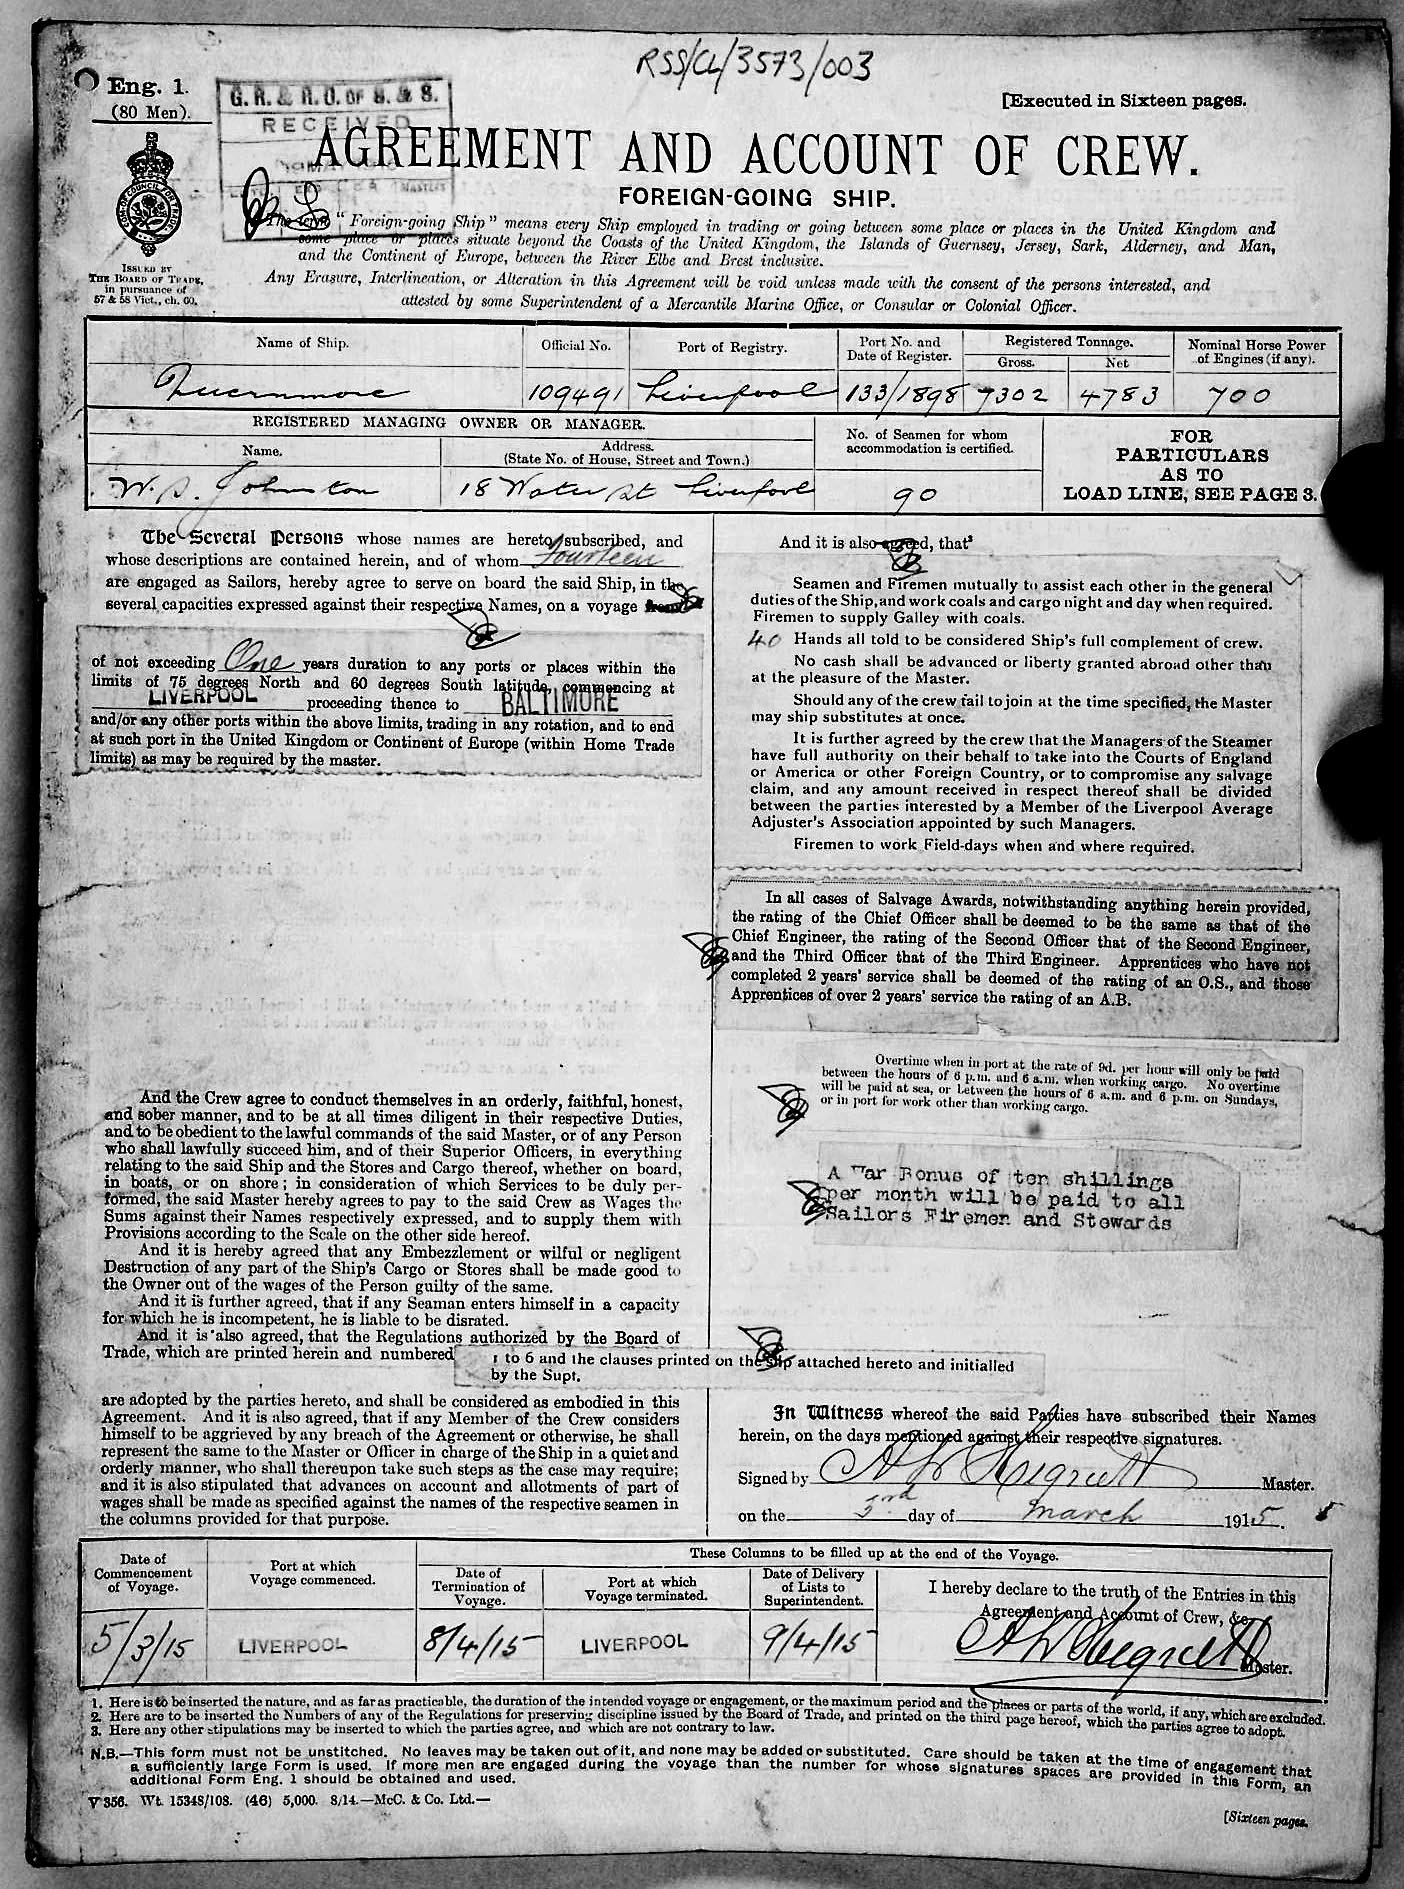 RSS/CL/3573/003
Eng. 1.
(80 Men).
[Executed in Sixteen pages.
G. R. & R. O. OF S. & S.
RECEIVED
AGREEMENT AND ACCOUNT OF CREW.
FOREIGN-GOING SHIP.
The term "Foreign-going Ship" means every Ship employed in trading or going between some place or places in the United Kingdom and
some place or places situate beyond the Coasts of the United Kingdom, the Islands of Guernsey, Jersey, Sark, Alderney, and Man,
and the Continent of Europe, between the River Elbe and Brest inclusive.
Any Erasure, Interlineation, or Alteration in this Agreement will be void unless made with the consent of the persons interested, and
attested by some Superintendent of a Mercantile Marine Office, or Consular or Colonial Officer.
ISSUED BY
THE BOARD OF TRADE,
in pursuance of
57 & 58 Vict., ch. 60.
Name of Ship. Official No. Port of Registry. Port No. and Date of Register. Registered Tonnage. Gross. Net Nominal Horse Power of Engines (if any).
Quernmore 109491 Liverpool 133/1898 7302 4783 700
REGISTERED MANAGING OWNER OR MANAGER.
Name. Address. (State No. of House, Street and Town.) No. of Seamen for whom accommodation is certified.
W. S. Johnston 18 Water St Liverpool 90
FOR
PARTICULARS
AS TO
LOAD LINE, SEE PAGE 3.
The Several Persons whose names are hereto subscribed, and
whose descriptions are contained herein, and of whom fourteen
are engaged as Sailors, hereby agree to serve on board the said Ship, in the
several capacities expressed against their respective Names, on a voyage from
of not exceeding One years duration to any ports or places within the
limits of 75 degrees North and 60 degrees South latitude, commencing at
LIVERPOOL proceeding thence to BALTIMORE
and/or any other ports within the above limits, trading in any rotation, and to end
at such port in the United Kingdom or Continent of Europe (within Home Trade
limits) as may be required by the master.
And the Crew agree to conduct themselves in an orderly, faithful, honest,
and sober manner, and to be at all times diligent in their respective Duties,
and to be obedient to the lawful commands of the said Master, or of any Person
who shall lawfully succeed him, and of their Superior Officers, in everything
relating to the said Ship and the Stores and Cargo thereof, whether on board,
in boats, or on shore; in consideration of which Services to be duly per-
formed, the said Master hereby agrees to pay to the said Crew as Wages the
Sums against their Names respectively expressed, and to supply them with
Provisions according to the Scale on the other side hereof.
And it is hereby agreed that any Embezzlement or wilful or negligent
Destruction of any part of the Ship's Cargo or Stores shall be made good to
the Owner out of the wages of the Person guilty of the same.
And it is further agreed, that if any Seaman enters himself in a capacity
for which he is incompetent, he is liable to be disrated.
And it is also agreed, that the Regulations authorized by the Board of
Trade, which are printed herein and numbered
1 to 6 and the clauses printed on the slip attached hereto and initialled
by the Supt.
are adopted by the parties hereto, and shall be considered as embodied in this
Agreement. And it is also agreed, that if any Member of the Crew considers
himself to be aggrieved by any breach of the Agreement or otherwise, he shall
represent the same to the Master or Officer in charge of the Ship in a quiet and
orderly manner, who shall thereupon take such steps as the case may require;
and it is also stipulated that advances on account and allotments of part of
wages shall be made as specified against the names of the respective seamen in
the columns provided for that purpose.
And it is also agreed, that³
Seamen and Firemen mutually to assist each other in the general
duties of the Ship, and work coals and cargo night and day when required.
Firemen to supply Galley with coals.
40 Hands all told to be considered Ship's full complement of crew.
No cash shall be advanced or liberty granted abroad other than
at the pleasure of the Master.
Should any of the crew fail to join at the time specified, the Master
may ship substitutes at once.
It is further agreed by the crew that the Managers of the Steamer
have full authority on their behalf to take into the Courts of England
or America or other Foreign Country, or to compromise any salvage
claim, and any amount received in respect thereof shall be divided
between the parties interested by a Member of the Liverpool Average
Adjuster's Association appointed by such Managers.
Firemen to work Field-days when and where required.
In all cases of Salvage Awards, notwithstanding anything herein provided,
the rating of the Chief Officer shall be deemed to be the same as that of the
Chief Engineer, the rating of the Second Officer that of the Second Engineer,
and the Third Officer that of the Third Engineer. Apprentices who have not
completed 2 years' service shall be deemed of the rating of an O.S., and those
Apprentices of over 2 years' service the rating of an A.B.
Overtime when in port at the rate of 9d. per hour will only be paid
between the hours of 6 p.m. and 6 a.m. when working cargo. No overtime
will be paid at sea, or between the hours of 6 a.m. and 6 p.m. on Sundays,
or in port for work other than working cargo.
A War Bonus of ten shillings
per month will be paid to all
Sailors Firemen and Stewards
In Witness whereof the said Parties have subscribed their Names
herein, on the days mentioned against their respective signatures.
Signed by Master.
on the 3rd day of March 1915.
Date of Commencement of Voyage. Port at which Voyage commenced. These Columns to be filled up at the end of the Voyage.
Date of Termination of Voyage. Port at which Voyage terminated. Date of Delivery of Lists to Superintendent.
I hereby declare to the truth of the Entries in this
Agreement and Account of Crew, &c.
5/3/15 LIVERPOOL 8/4/15 LIVERPOOL 9/4/15
Master.
1. Here is to be inserted the nature, and as far as practicable, the duration of the intended voyage or engagement, or the maximum period and the places or parts of the world, if any, which are excluded.
2. Here are to be inserted the Numbers of any of the Regulations for preserving discipline issued by the Board of Trade, and printed on the third page hereof, which the parties agree to adopt.
3. Here any other stipulations may be inserted to which the parties agree, and which are not contrary to law.
N.B.—This form must not be unstitched. No leaves may be taken out of it, and none may be added or substituted. Care should be taken at the time of engagement that
a sufficiently large Form is used. If more men are engaged during the voyage than the number for whose signatures spaces are provided in this Form, an
additional Form Eng. 1 should be obtained and used.
V 356. Wt. 15348/108. (46) 5,000. 8/14.—McC. & Co. Ltd.—
[Sixteen pages.